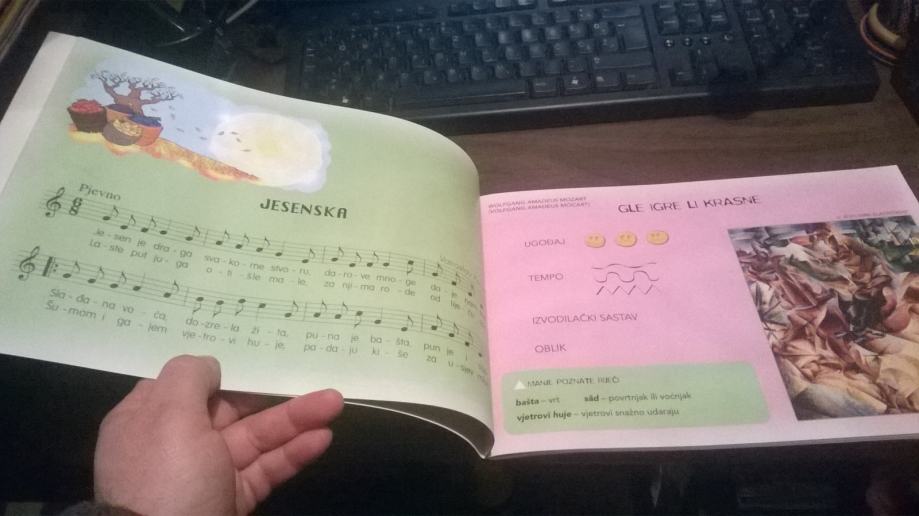 JESENSKA
Pjevno
Je - sen je dra - ga sva - ko - me stvo - ru, da - ro - ve mno - ge da - je
La - ste put ju - ga o - ti - šle ma - le, za nji - ma ro - de od
Sla - đa - na vo - ća, do - zre - la ži - ta, pu - na je ba - šta, pun je i
Šu - mom i ga - jem vje - tro - vi hu - je, pa - da - ju ki - še za u -
WOLFGANG AMADEUS MOZART
(VOLFGANG AMADEUS MOCART)
GLE IGRE LI KRASNE
UGOĐAJ
TEMPO
IZVODILAČKI SASTAV
OBLIK
MANJE POZNATE RIJEČI
bašta – vrt sad – povrtnjak ili voćnjak
vjetrovi huje – vjetrovi snažno udaraju